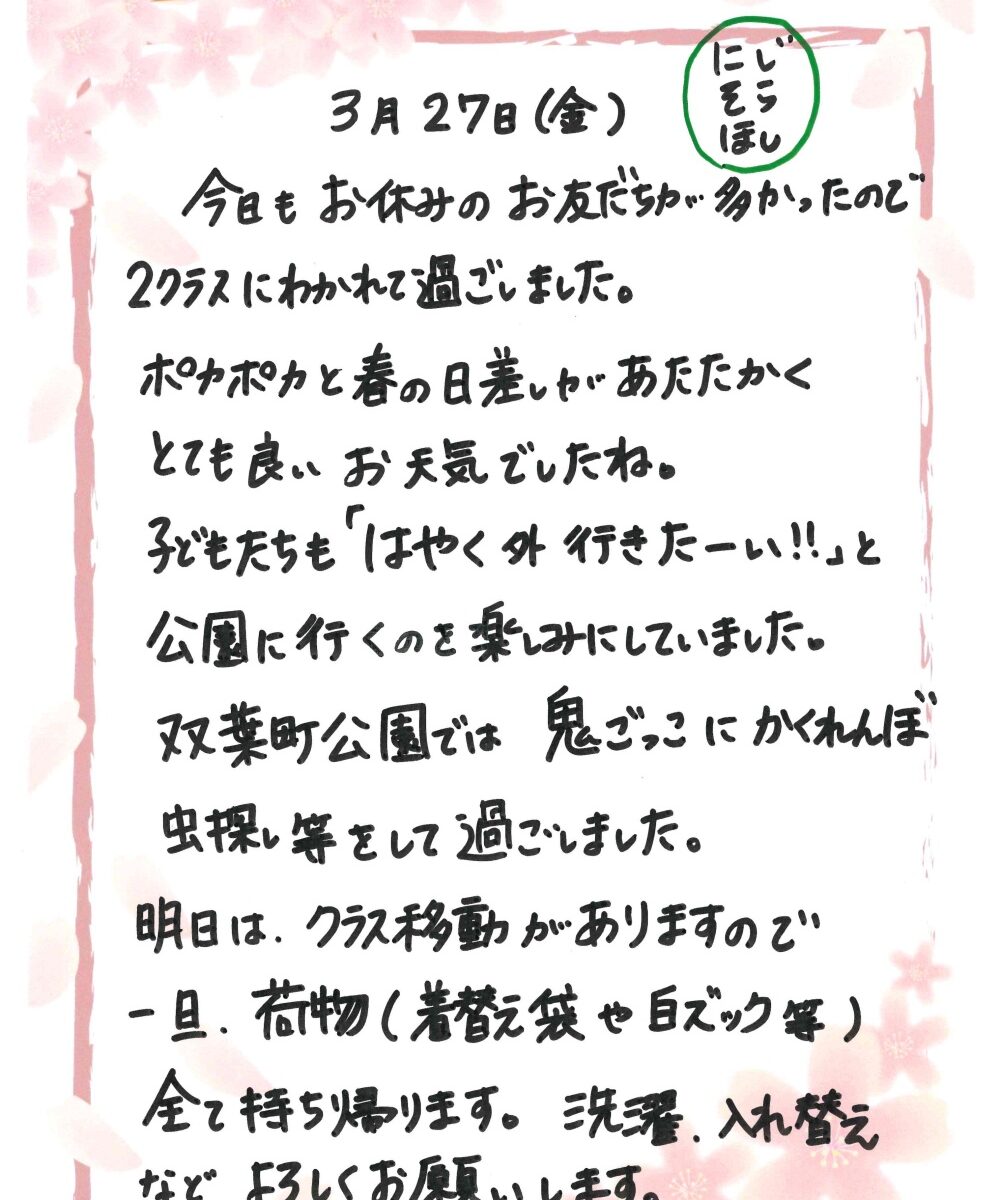 にじ
そら
ほし
3月27日(金)
今日もお休みのお友だちが多かったので
2クラスにわかれて過ごしました。
ポカポカと春の日差しがあたたかく
とても良いお天気でしたね。
子どもたちも「はやく外行きたーい!!」と
公園に行くのを楽しみにしていました。
双葉町公園では 鬼ごっこにかくれんぼ
虫探し等をして過ごしました。
明日は、クラス移動がありますので
一旦、荷物(着替え袋や白ズック等)
全て持ち帰ります。洗濯、入れ替え
などよろしくお願いします。